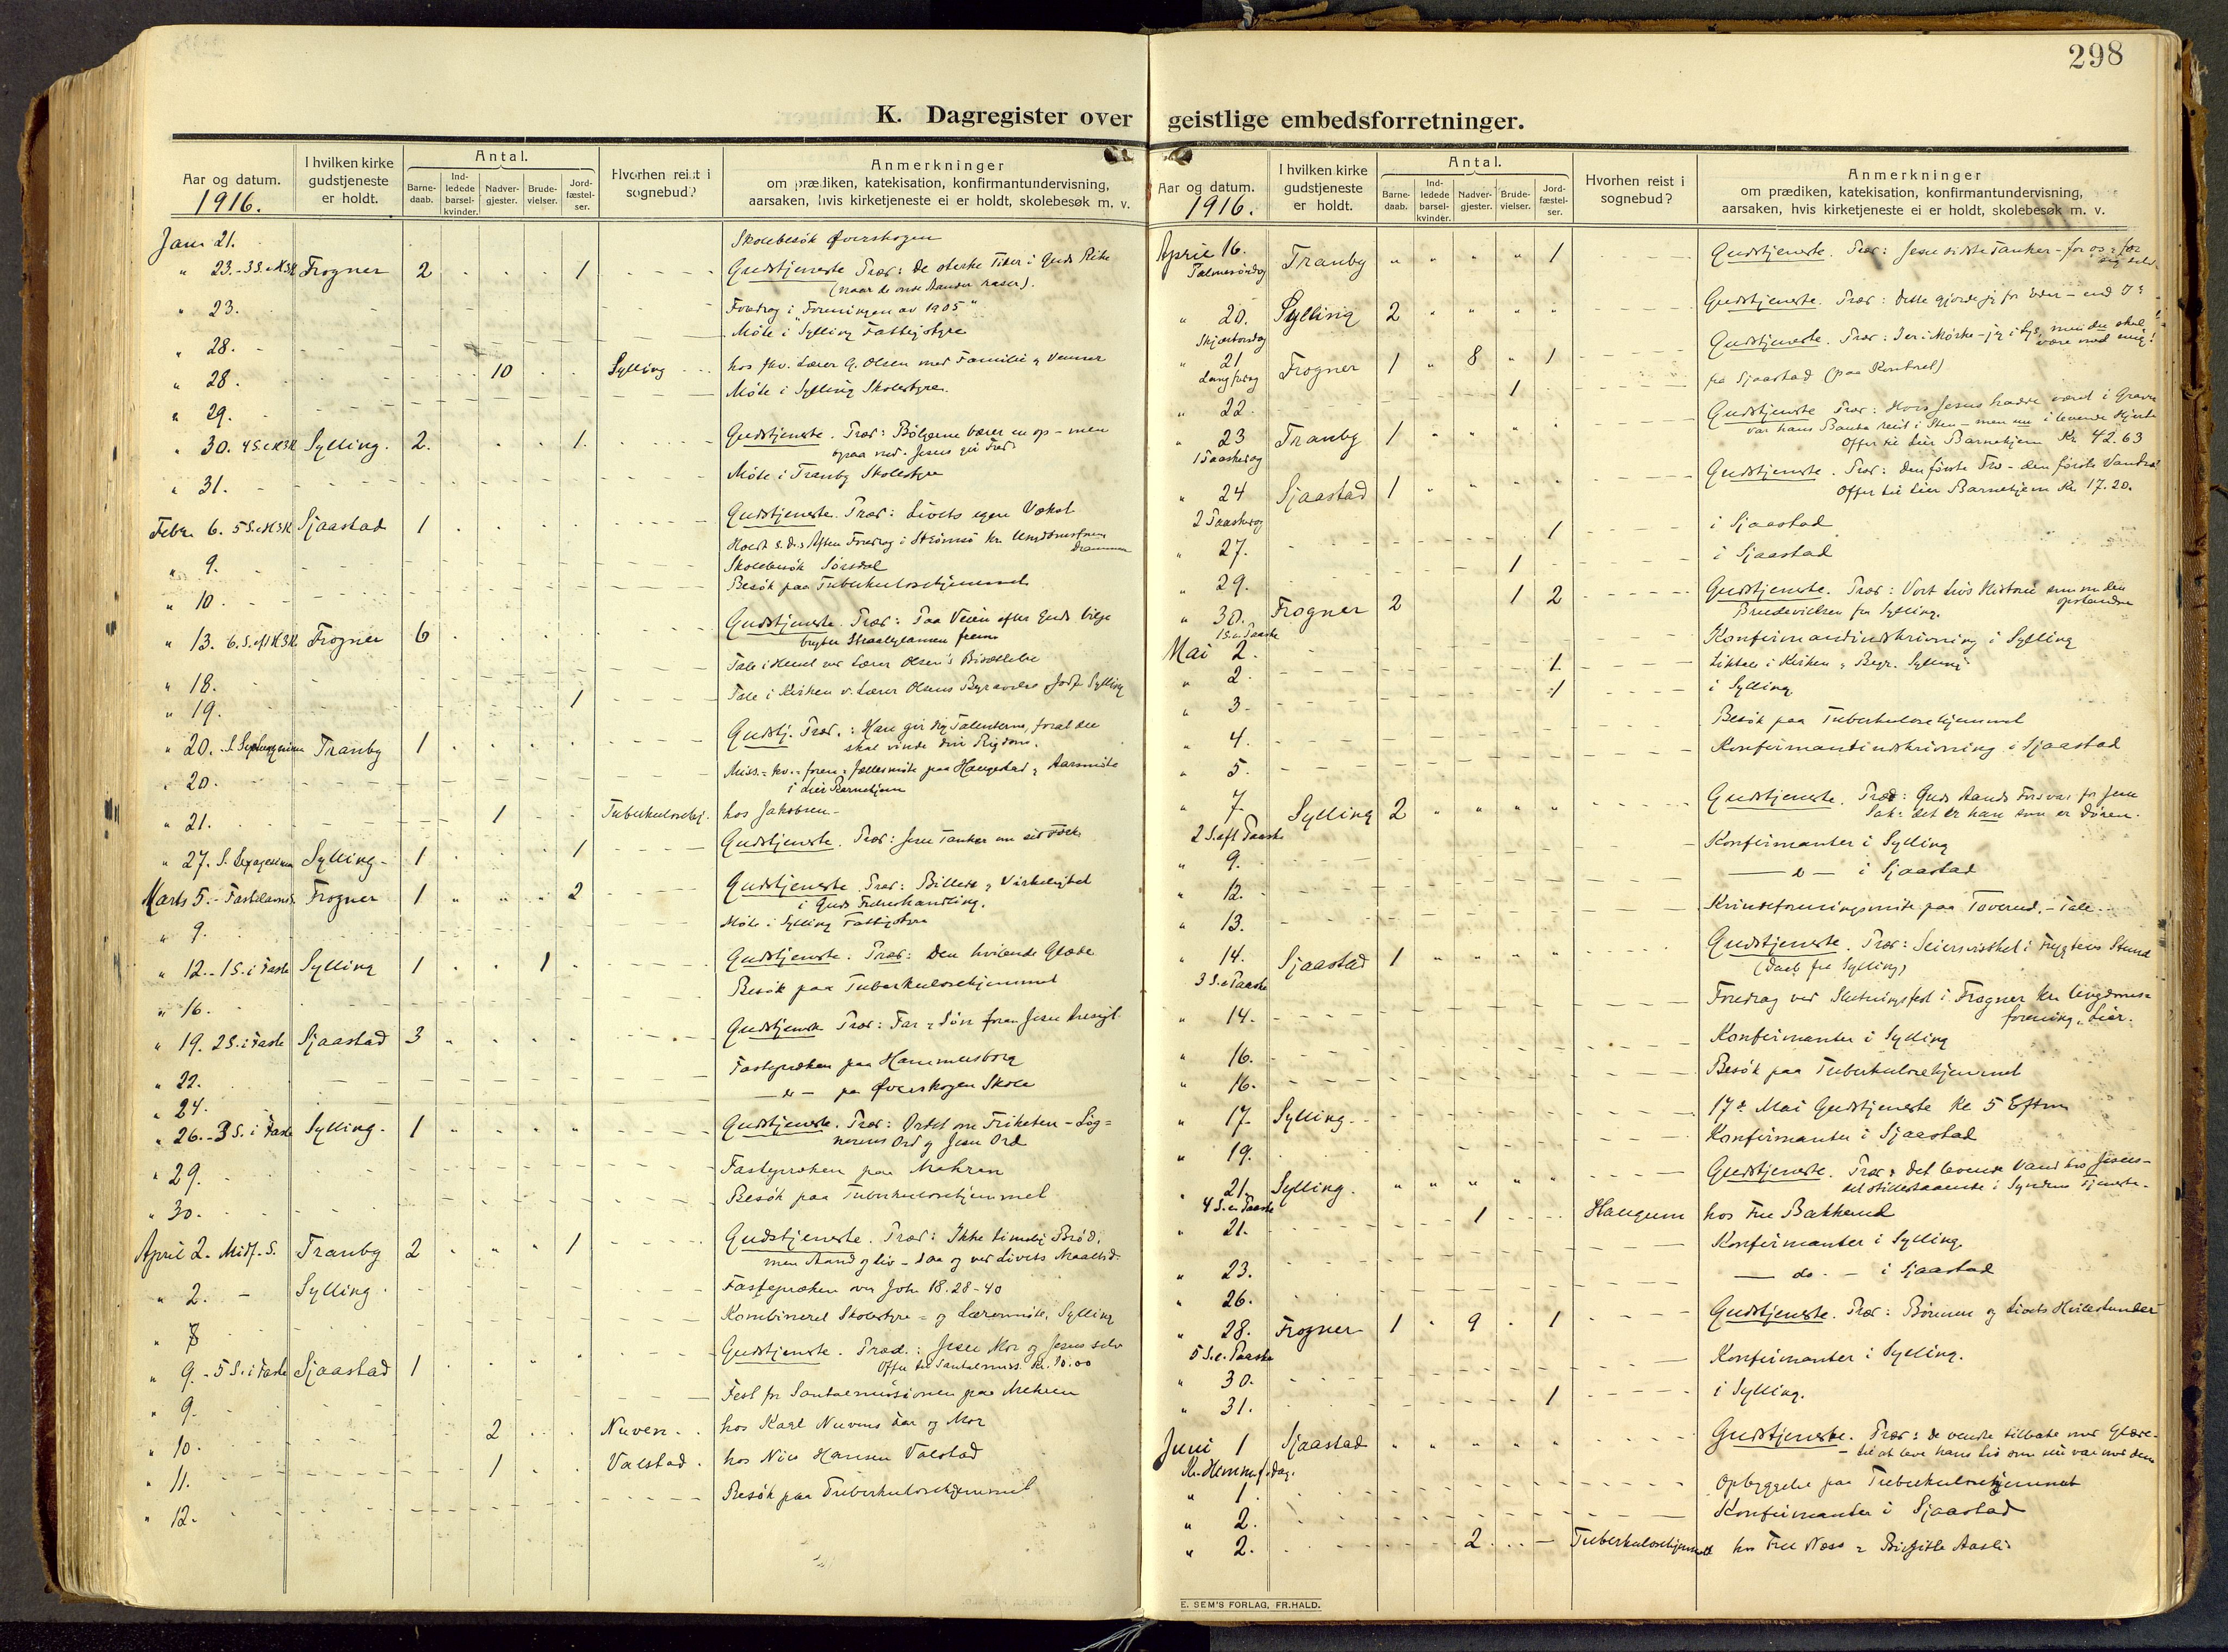 298
K. Dagregister over geistlige embedsforretninger.
Aar og datum. 1916.
I hvilken kirke gudstjeneste er holdt.
Antal.
Barne-daab.
Ind-ledede barsel-kvinder.
Nadver-gjester.
Brude-vielser.
Jord-fæstel-ser.
Hvorhen reist i sognebud?
Anmerkninger
om prædiken, katekisation, konfirmantundervisning,
aarsaken, hvis kirketjeneste ei er holdt, skolebesøk m. v.
Janr 21. Skolebesøk Øverskogen
" 23. Frogner 2 1 Gudstjeneste. Præd: De sterke Tider i Guds Rike
(naar de onde Aander raser).
" 23. Foredrag i "Foreningen av 1905"
" 28. Møte i Sylling Fattigstyre
" 28. 10 Sylling hos fhv. Lærer G. Olsen med Familie & Venner
" 29. Møte i Sylling Skolestyre.
" 30. Sylling. 2. 1. Gudstjeneste. Præd: Bølgerne bærer en op - men
ogsaa ned. Jesus gir Fred.
" 31. Møte i Tranby Skolestyre
Febr. 6. Sjaastad 1 Gudstjeneste. Præd: Livets egen Vækst
Foredrag i Strømsø kr. Ungdomsforen. Drammen
" 9. Skolebesøk Sørsdal
" 10. Besøk paa Tuberkulosehjemmet
" 13. Frogner 6 Gudstjeneste. Præd: Paa Veien efter Guds Vilje
bryter Straaleglansen frem
" 18. Tale i Hjemmet ved Lærer Olsen's Bisættelse
" 19. 1 Tale i Kirken v. Lærer Olsens Begravelse Jordf. Sylling
" 20. S. Septuagesima Tranby 1 Gudstj. Præd.: Han gir dig Talenterne, forat du
skal vinde din Rigdom.
" 20. Miss.- kv.- foren.- Fællesmøte paa Haugestad & Aarsmøte
i Lier Barnehjem
" 21. 1 Tuberkulosehj. hos Jakobsen
" 27. S. Sexagesima Sylling 1 1 Gudstjeneste. Præd: Jesu Tanker om sit Folk
Marts 5. Fastelavns. Frogner 1 " " " 2 Gudstjeneste. Præd: Billede & Virkelighet
i Guds Frelseshandling.
" 9. Møte i Sylling Fattigstyre
" 12. 1 S. i Faste Sylling 1 1 Gudstjeneste. Præd: Den hvilende Glæde
" 16. Besøk paa Tuberkulosehjemmet
" 19. 2 S. i Faste Sjaastad 3 Gudstjeneste Præd: Far & Søn foran Jesu Ansigt
" 22. Fastepræken paa Hammersborg
" 24. — do — paa Øverskogen Skole
" 26. 3 S. i Faste Sylling 1 Gudstjeneste. Præd: Ordet om Friheten - Løg=
nerens Ord og Jesu Ord
" 29. Fastepræken paa Mehren
" 30. Besøk paa Tuberkulosehjemmet
April 2. Midf. S. Tranby 2 1 Gudstjeneste. Præd: Ikke timelig Brød,
men Aand og Liv - saa og ved Livets Maaltid
" 2. Sylling Fastepræken over Joh. 18. 28-40
" 8 Kombineret Skolestyre= og Lærermøte, Sylling
" 9. 5 S. i Faste Sjaastad 1 Gudstjeneste. Præd.: Jesu Mor og Jesus selv
Offer til Santalmiss. Kr. 10.00
" 9. Fest for Santalmissionen paa Mehren
" 10. 2 Nuven hos Karl Nuvens Far og Mor
" 11. 1 Valstad hos Nils Hansen Valstad
" 12. Besøk paa Tuberkulosehjemmet
Aar og datum. 1916.
I hvilken kirke gudstjeneste er holdt.
Antal.
Barne-daab.
Ind-ledede barsel-kvinder.
Nadver-gjester.
Brude-vielser.
Jord-fæstel-ser.
Hvorhen reist i sognebud?
Anmerkninger
om prædiken, katekisation, konfirmantundervisning,
aarsaken, hvis kirketjeneste ei er holdt, skolebesøk m. v.
April 16. Palmesøndag Tranby " " " " 1 Gudstjeneste. Præd: Jesu sidste Tanker - for os & for sig selv.
" 20. Skjærtorsdag Sylling 2 " " " " Gudstjeneste. Præd: Dette gjorde jeg for eder - end I?
" 21 Langfredag Frogner 1 " 8 " 1 Gudstjeneste. Præd: I er i Mørke - jeg i Lys, men du skal være med mig!
" 22. 1 fra Sjaastad (paa Kontoret)
" 23 1 Paaskedag Tranby 1 Gudstjeneste Præd: Hvis Jesus hadde været i Graven
var hans Bauta reist i Sten - men nu i levende Hjerter
Offer til Lier Barnehjem Kr. 42.63
" 24 2 Paaskedag Sjaastad 1 Gudstjeneste. Præd: Den første Tro - den første Vandring
Offer til Lier Barnehjem Kr. 17.20.
" 27. 1 i Sjaastad
" 29. 1 i Sjaastad
" 30. 1 S. e. Paaske Frogner 2 1 2 Gudstjeneste. Præd: Vort Livs Historie som om den opstandne
Brudevielsen fra Sylling.
Mai 2. Konfirmandindskrivning i Sylling
" 2. 1. Liktale i Kirken & Begr. Sylling
" 3. 1 i Sylling
" 4. Besøk paa Tuberkulosehjemmet
" 5. Konfirmantindskrivning i Sjaastad
" 7. 2 S. eft. Paaske Sylling 2 " " " " Gudstjeneste. Præd: Guds Aands Forsvar for Jesu
Sak: det er han som er Døren.
" 9. Konfirmanter i Sylling
" 12. — do — i Sjaastad
" 13. Kvindeforeningsmøte paa Toverud. - Tale.
" 14. 3 S. e. Paaske Sjaastad 1 " " " " Gudstjeneste. Præd: Seiersvisshet i Frygtens Stund
(Daab fra Sylling)
" 14. Foredrag ved Slutningsfest i Frogner kr. Ungdoms=
forening, Lier.
" 16. Konfirmanter i Sylling
" 16. Besøk paa Tuberkulosehjemmet
" 17. Sylling 17de Mai Gudstjeneste Kl 5 Efterm
" 19. Konfirmanter i Sjaastad
" 21. 4 S. e. Paaske Sylling. " " " " " Gudstjeneste. Præd: Det levende Vand hos Jesus -
det stillestaaende i Syndens Tjeneste.
" 21. 1 Haugum hos Fru Bakkerud
" 23. Konfirmanter i Sylling.
" 26. — do. — i Sjaastad
" 28. 5 S. e. Paaske Frogner 1 9 1 Gudstjeneste. Præd: Bønnen og Livets Hvilestunder
" 30. Konfirmanter i Sylling.
" 31. 1 i Sylling.
Juni 1 Kr. Himmelf.dag. Sjaastad " " " " " Gudstjeneste. Præd: De vendte tilbake med Glæde -
- til at leve hans Liv som nu var med dem
" 1. Opbyggelse paa Tuberkulosehjemmet
" 2. Konfirmanter i Sjaastad
" 2. 2 Tuberkulosehjemmet hos Fru Næss & Birgitte Aasli.
E. SEM'S FORLAG, FR.HALD.